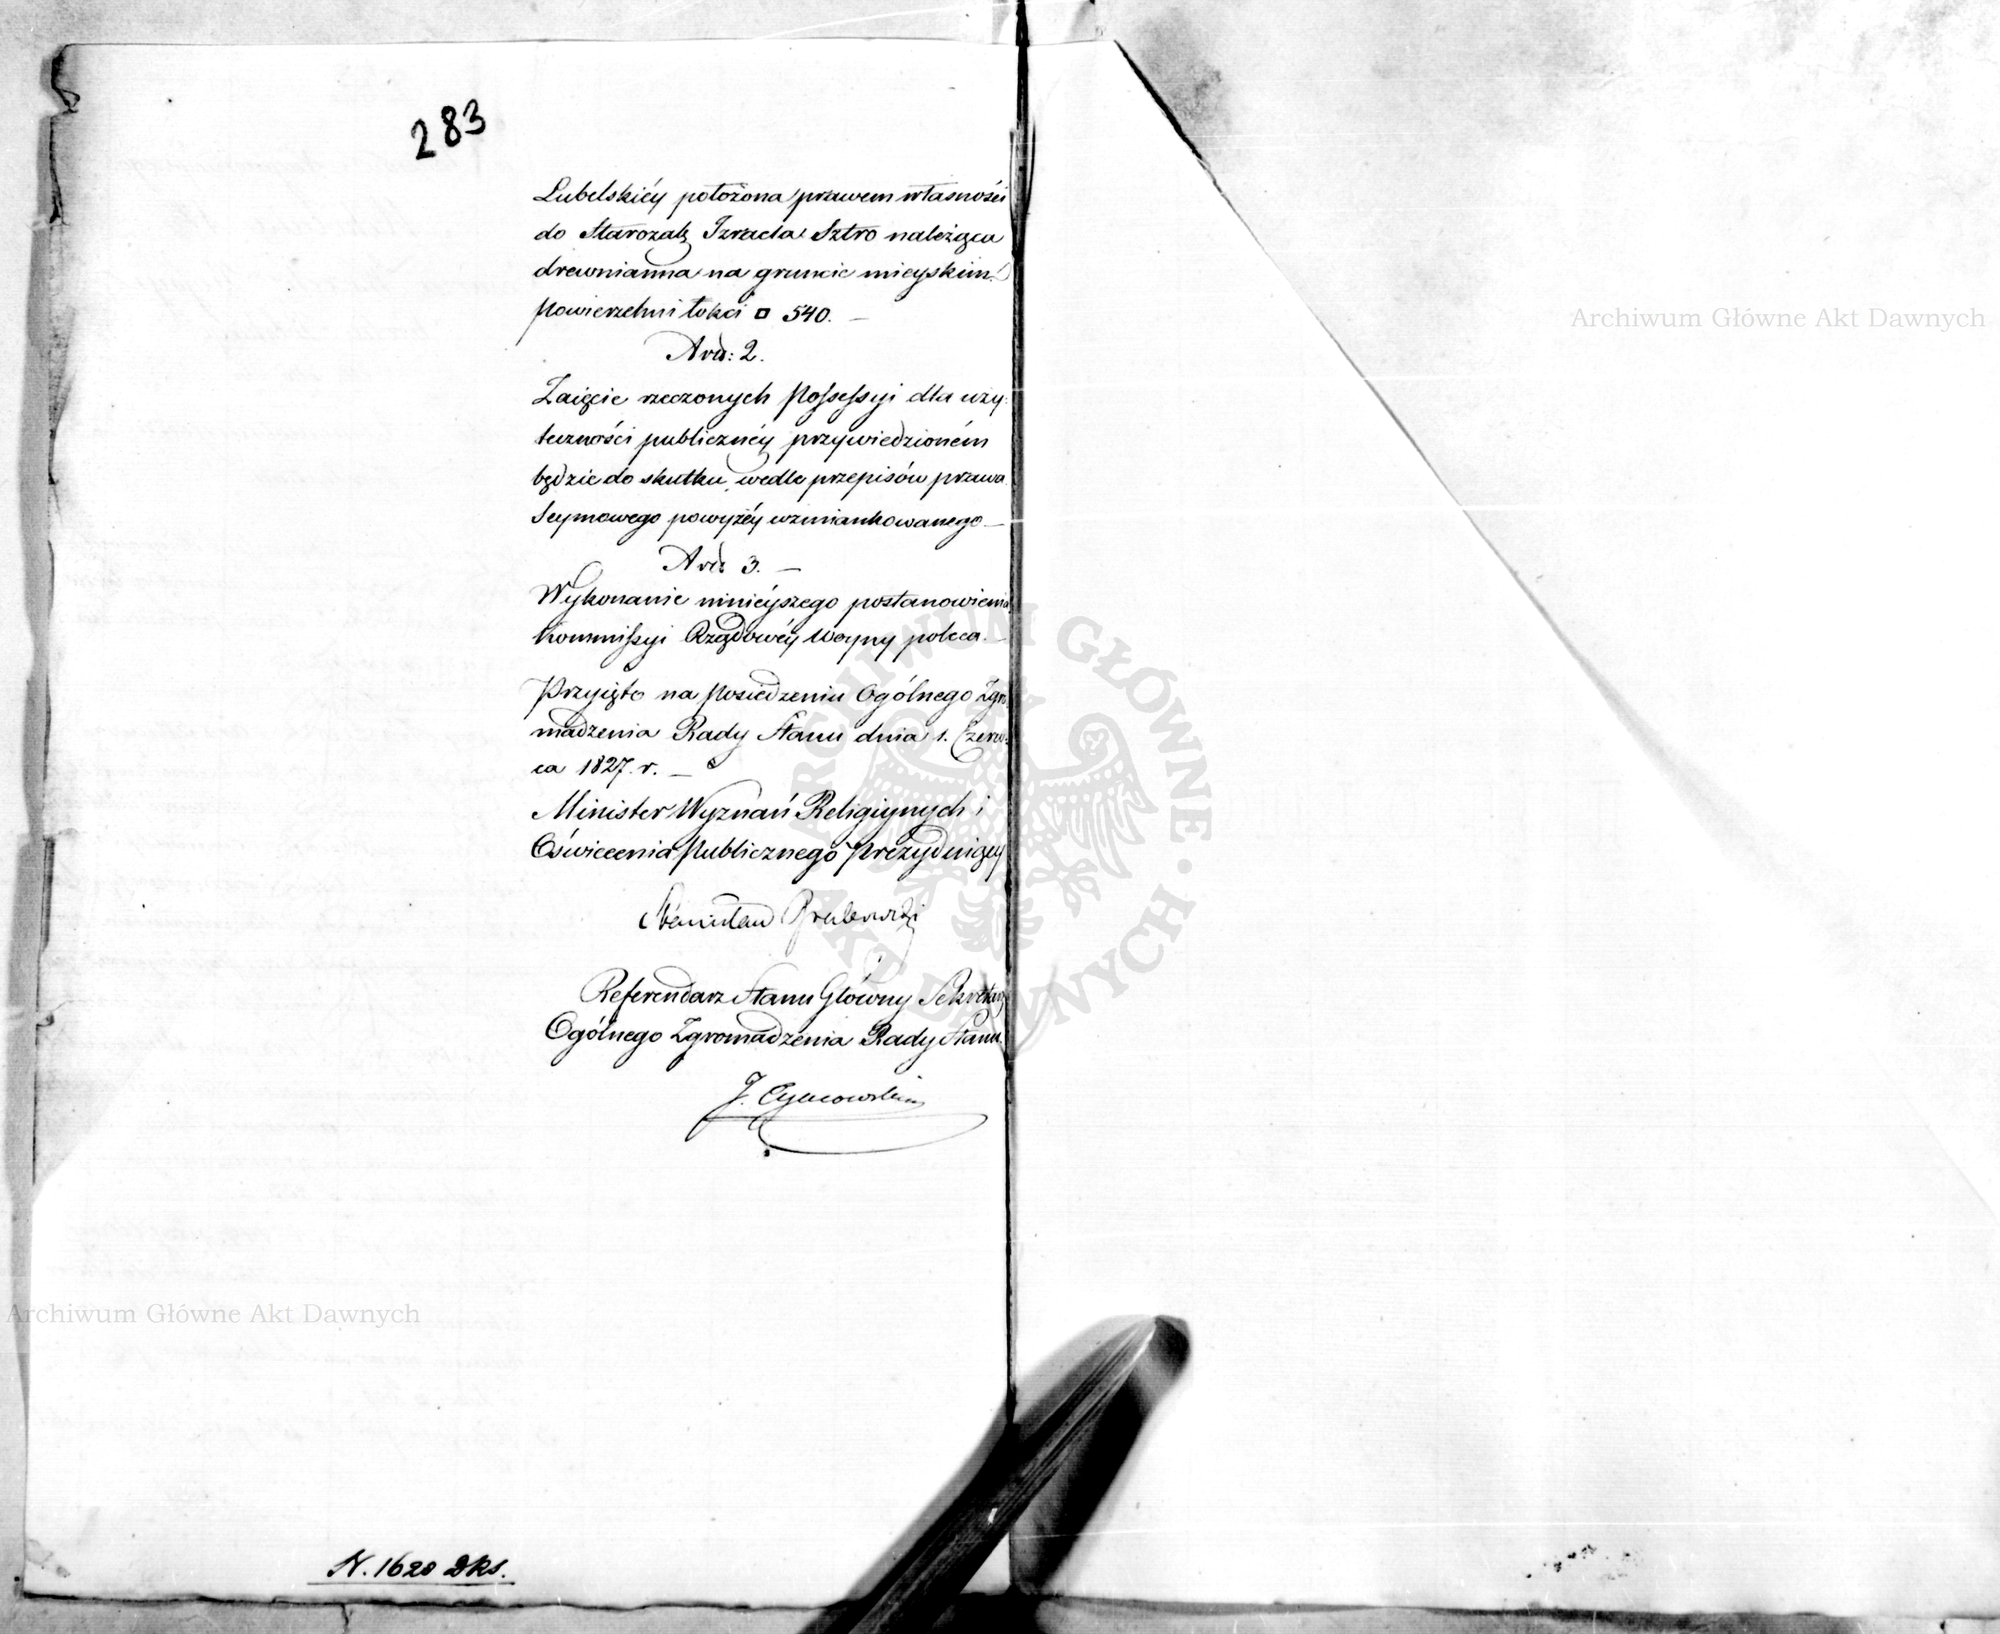 283
Lubelskiéy położona prawem własności
do Starozak Izraela Sztro należąca
drewnianna na gruncie mieyskim
powierzchni łokci □ 540. —
Art: 2.
Zaięcie rzeczonych Possessyi dla uży-
teczności publicznéy przywiedzioném
będzie do skutku, wedle przepisów prawa
Seymowego powyżéy wzmiankowanego —
Art 3. —
Wykonanie ninieyszego postanowienia
Kommissyi Rządowéy Woyny poleca. —
Przyięto na posiedzeniu Ogólnego Zgro-
madzenia Rady Stanu dnia 1. Czerw-
ca 1827. r. —
Minister Wyznań Religiynych i
Oświecenia Publicznego Prezyduiący
Stanisław Grabowski
Referendarz Stanu Główny Sekretarz
Ogólnego Zgromadzenia Rady Stanu
J.
N. 1628 Dks.
Archiwum Główne Akt Dawnych
Archiwum Główne Akt Dawnych
ARCHIWUM GŁÓWNE AKT DAWNYCH